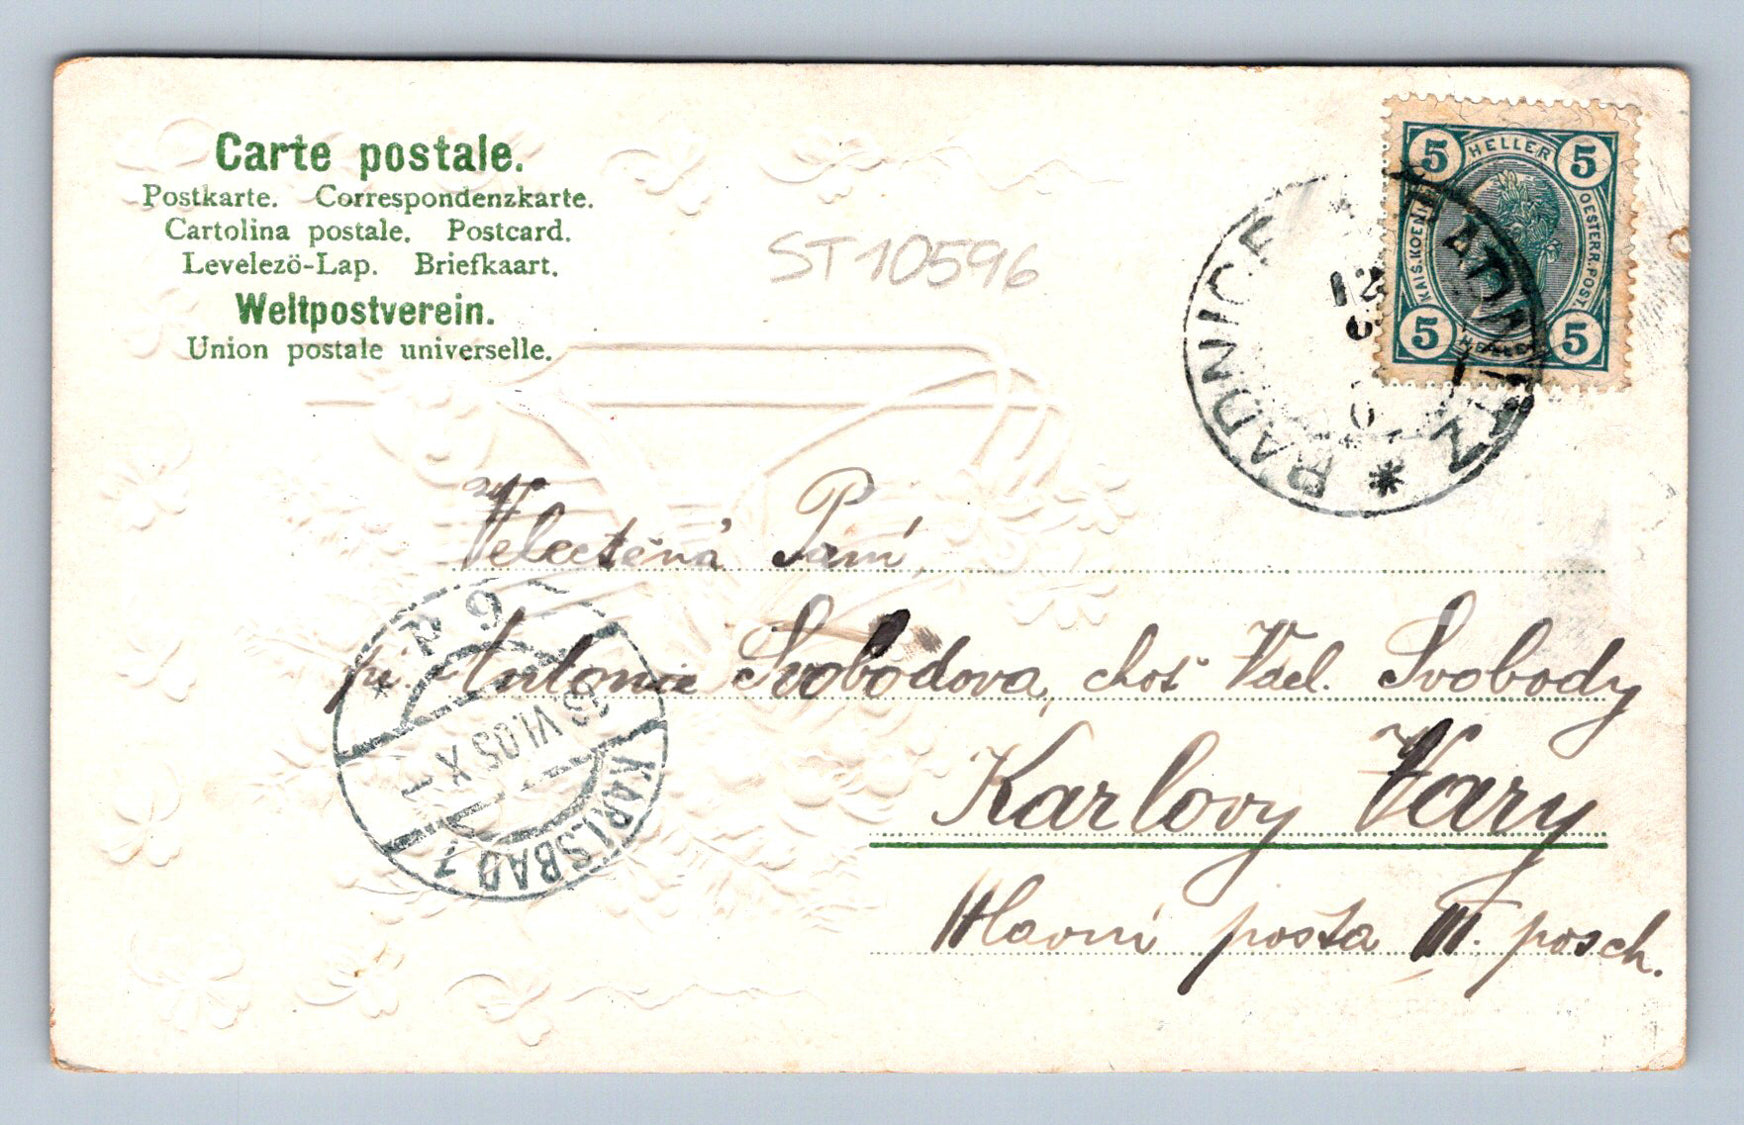 Carte postale.
Postkarte. Correspondenzkarte.
Cartolina postale. Postcard.
Levelezö-Lap. Briefkaart.
Weltpostverein.
Union postale universelle.
ST10596
5 HELLER 5
KAIS.KOEN. OESTERR.POST.
5 HELLER 5
RADNICE RADNITZ
12
6
Velectěná Paní
pí. Antonie Svobodova, choť Václ. Svobody
Karlovy Vary
Hlavní pošta III. posch.
KARLSBAD 1
VI.05 X